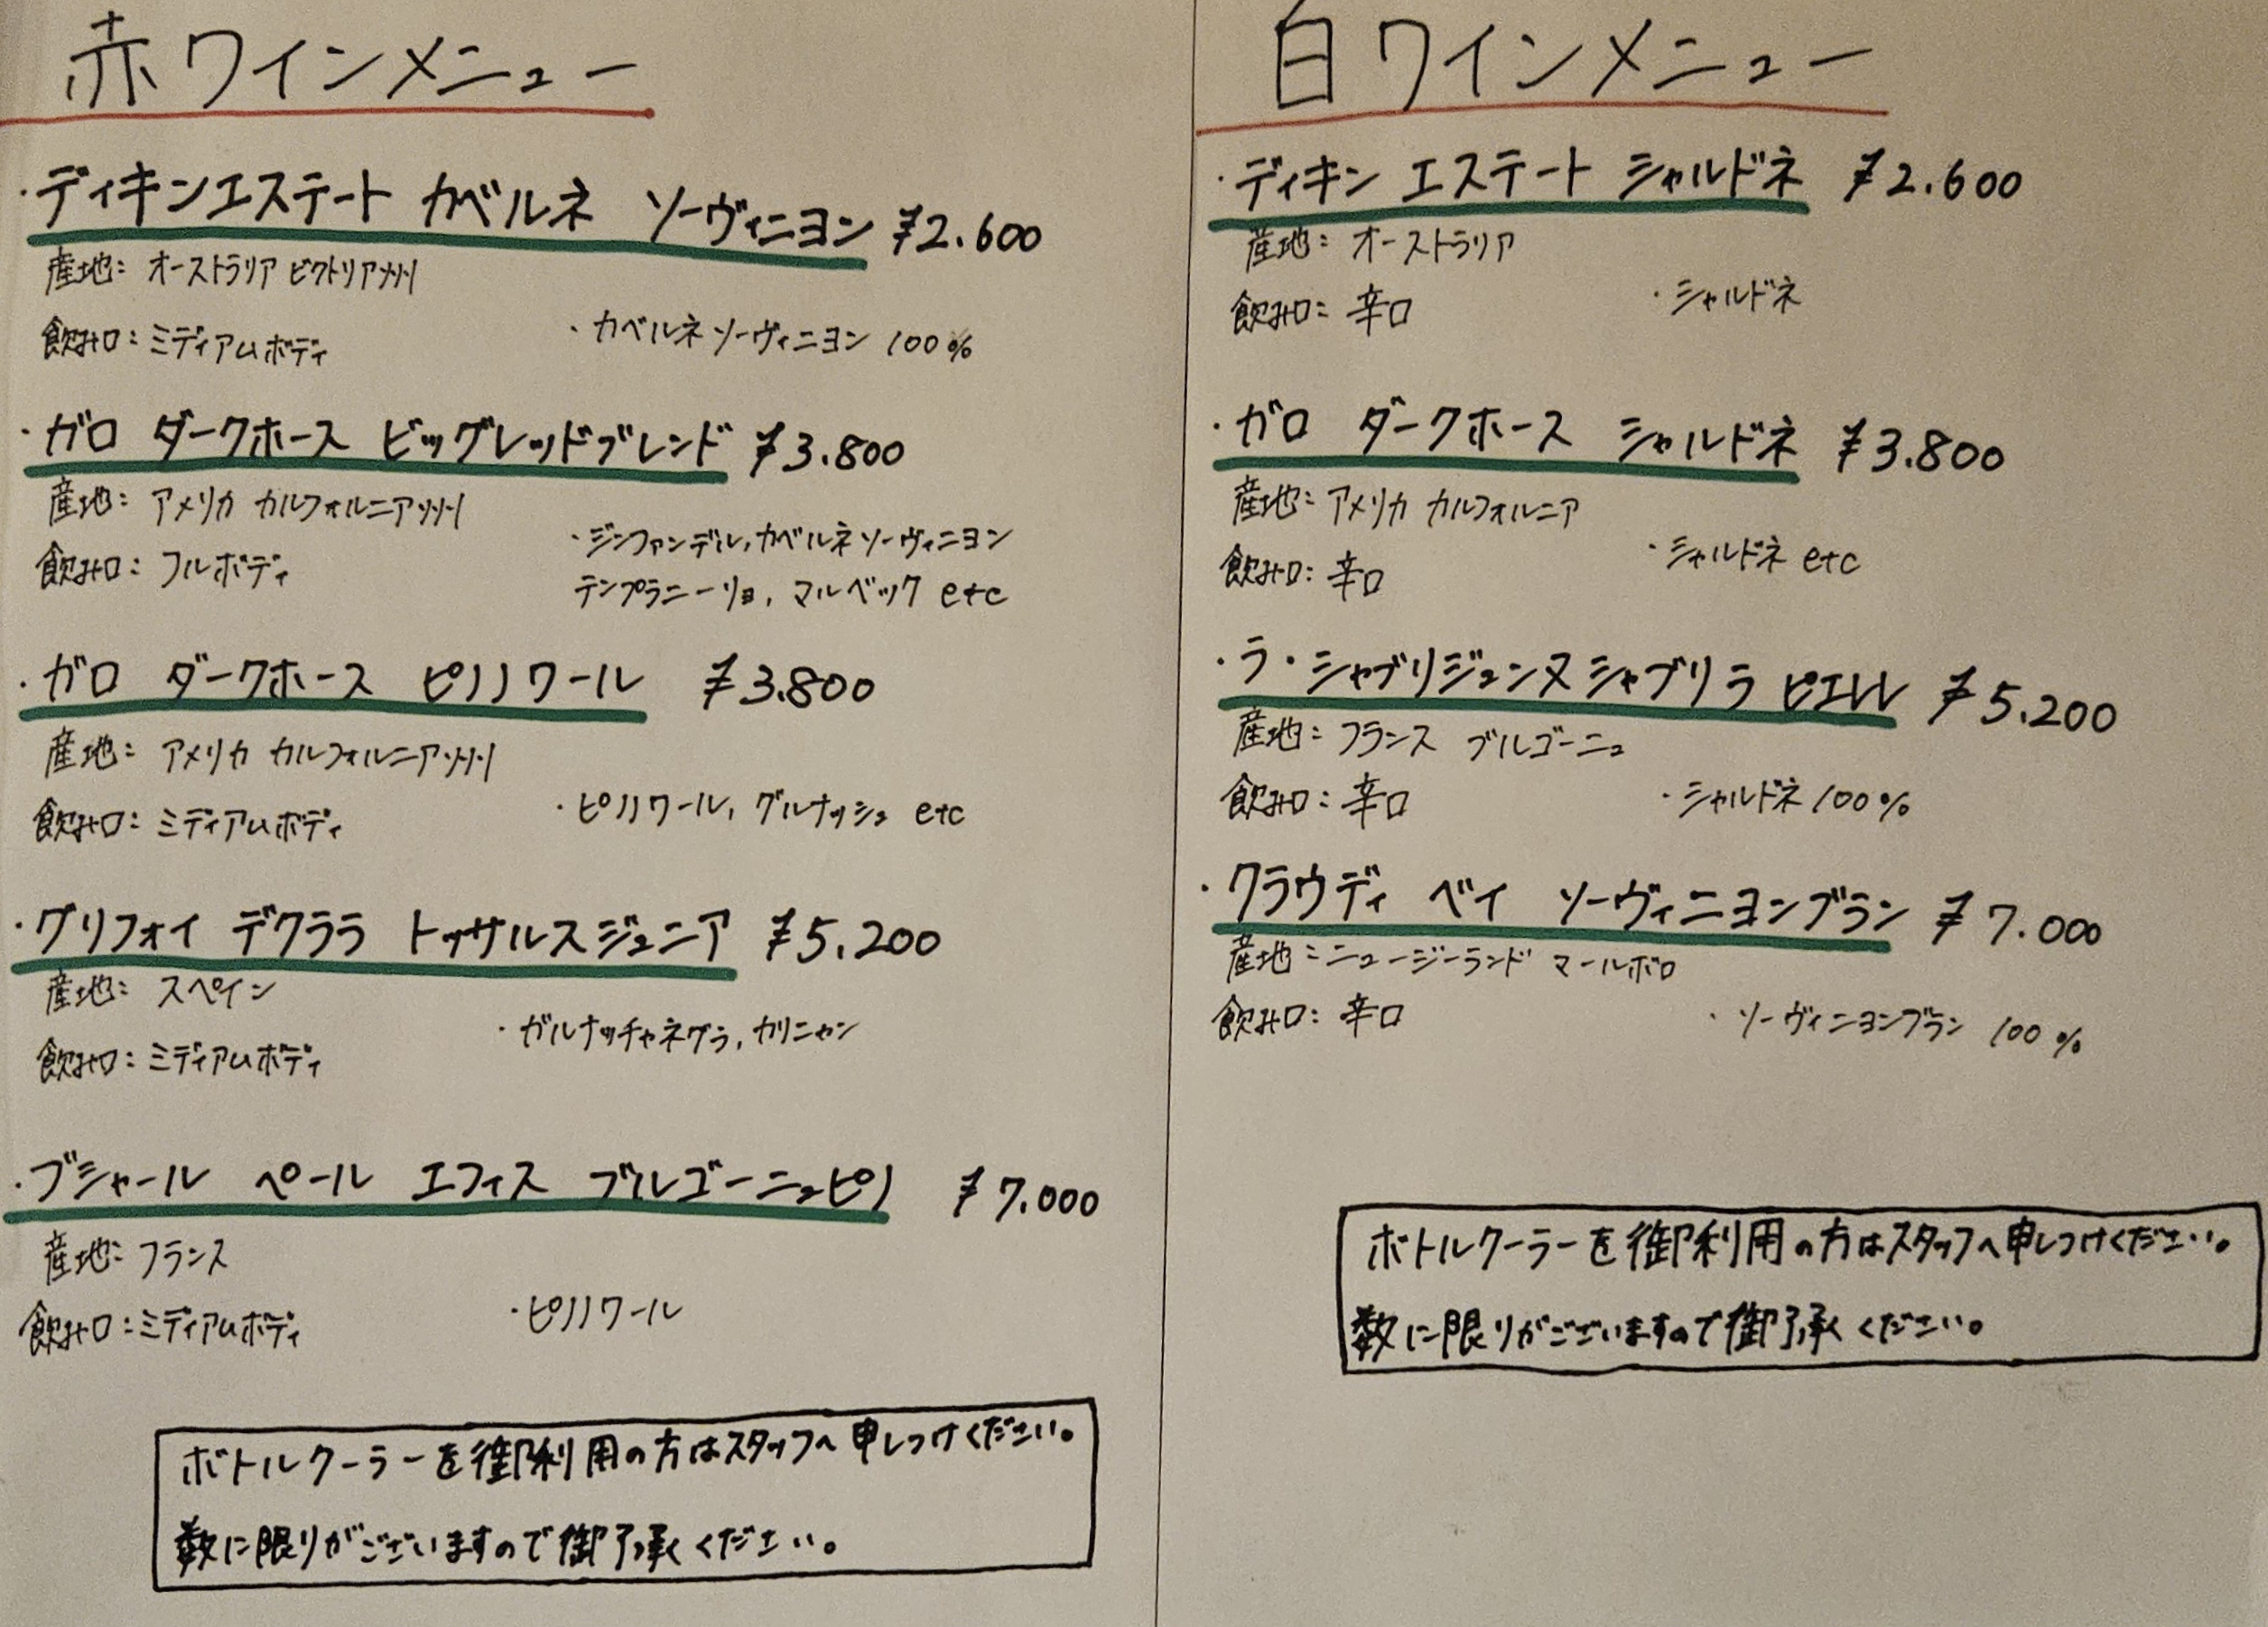 赤ワインメニュー
・ディキンエステート カベルネ ソーヴィニヨン ¥2.600
産地: オーストラリア ビクトリア州
飲み口: ミディアムボディ
・カベルネソーヴィニヨン 100%
・ガロ ダークホース ビッグレッドブレンド ¥3.800
産地: アメリカ カルフォルニア州
飲み口: フルボディ
・ジンファンデル,カベルネソーヴィニヨン
テンプラニーリョ, マルベック etc
・ガロ ダークホース ピノノワール ¥3.800
産地: アメリカ カルフォルニア州
飲み口: ミディアムボディ
・ピノノワール, グルナッシュ etc
・グリフォイ デクララ トッサルスジュニア ¥5.200
産地: スペイン
飲み口: ミディアムボディ
・ガルナッチャネグラ, カリニャン
・ブシャール ペール エフィス ブルゴーニュピノ ¥7.000
産地: フランス
飲み口: ミディアムボディ
・ピノノワール
ボトルクーラーを御利用の方はスタッフへ申しつけください。
数に限りがございますので御了承ください。
白ワインメニュー
・ディキン エステート シャルドネ ¥2.600
産地: オーストラリア
飲み口: 辛口
・シャルドネ
・ガロ ダークホース シャルドネ ¥3.800
産地: アメリカ カルフォルニア
飲み口: 辛口
・シャルドネ etc
・ラ・シャブリジェンヌシャブリラ ピエレレ ¥5.200
産地: フランス ブルゴーニュ
飲み口: 辛口
・シャルドネ 100%
・クラウディ ベイ ソーヴィニヨンブラン ¥7.000
産地: ニュージーランド マールボロ
飲み口: 辛口
・ソーヴィニヨンブラン 100%
ボトルクーラーを御利用の方はスタッフへ申しつけください。
数に限りがございますので御了承ください。